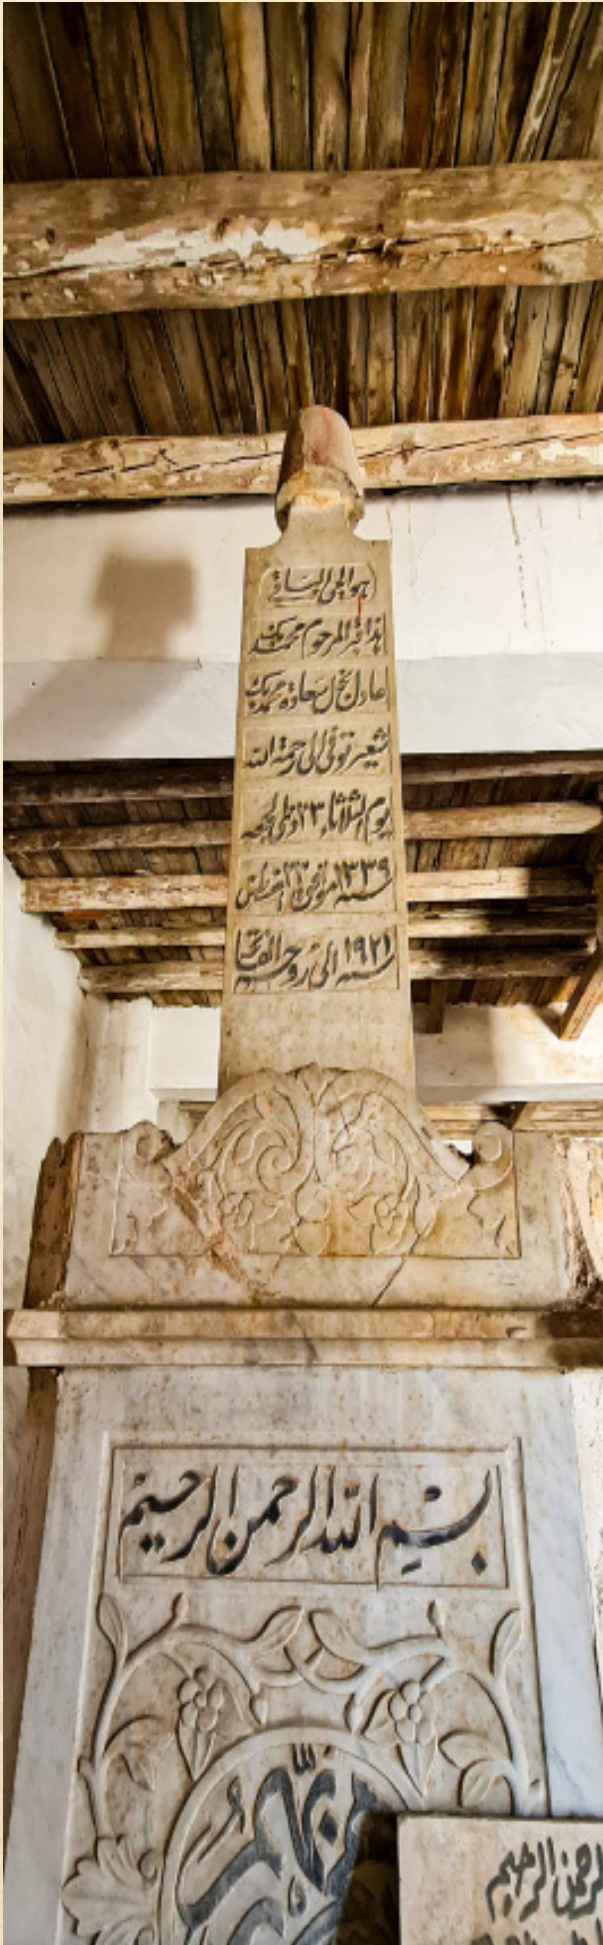 هو الحي الباقي
هذا قبر المرحوم محمد بك
عادل نجل سعادة محمد بك
شعير توفى الى رحمة الله
يوم الثلاثاء ٢٣ ذي الحجه
سنة ١٣٣٩ موافق ٣٠ اغسطس
سنة ١٩٢١ الى روحه الفاتحة
بسم الله الرحمن الرحيم
الرحمن الرحيم